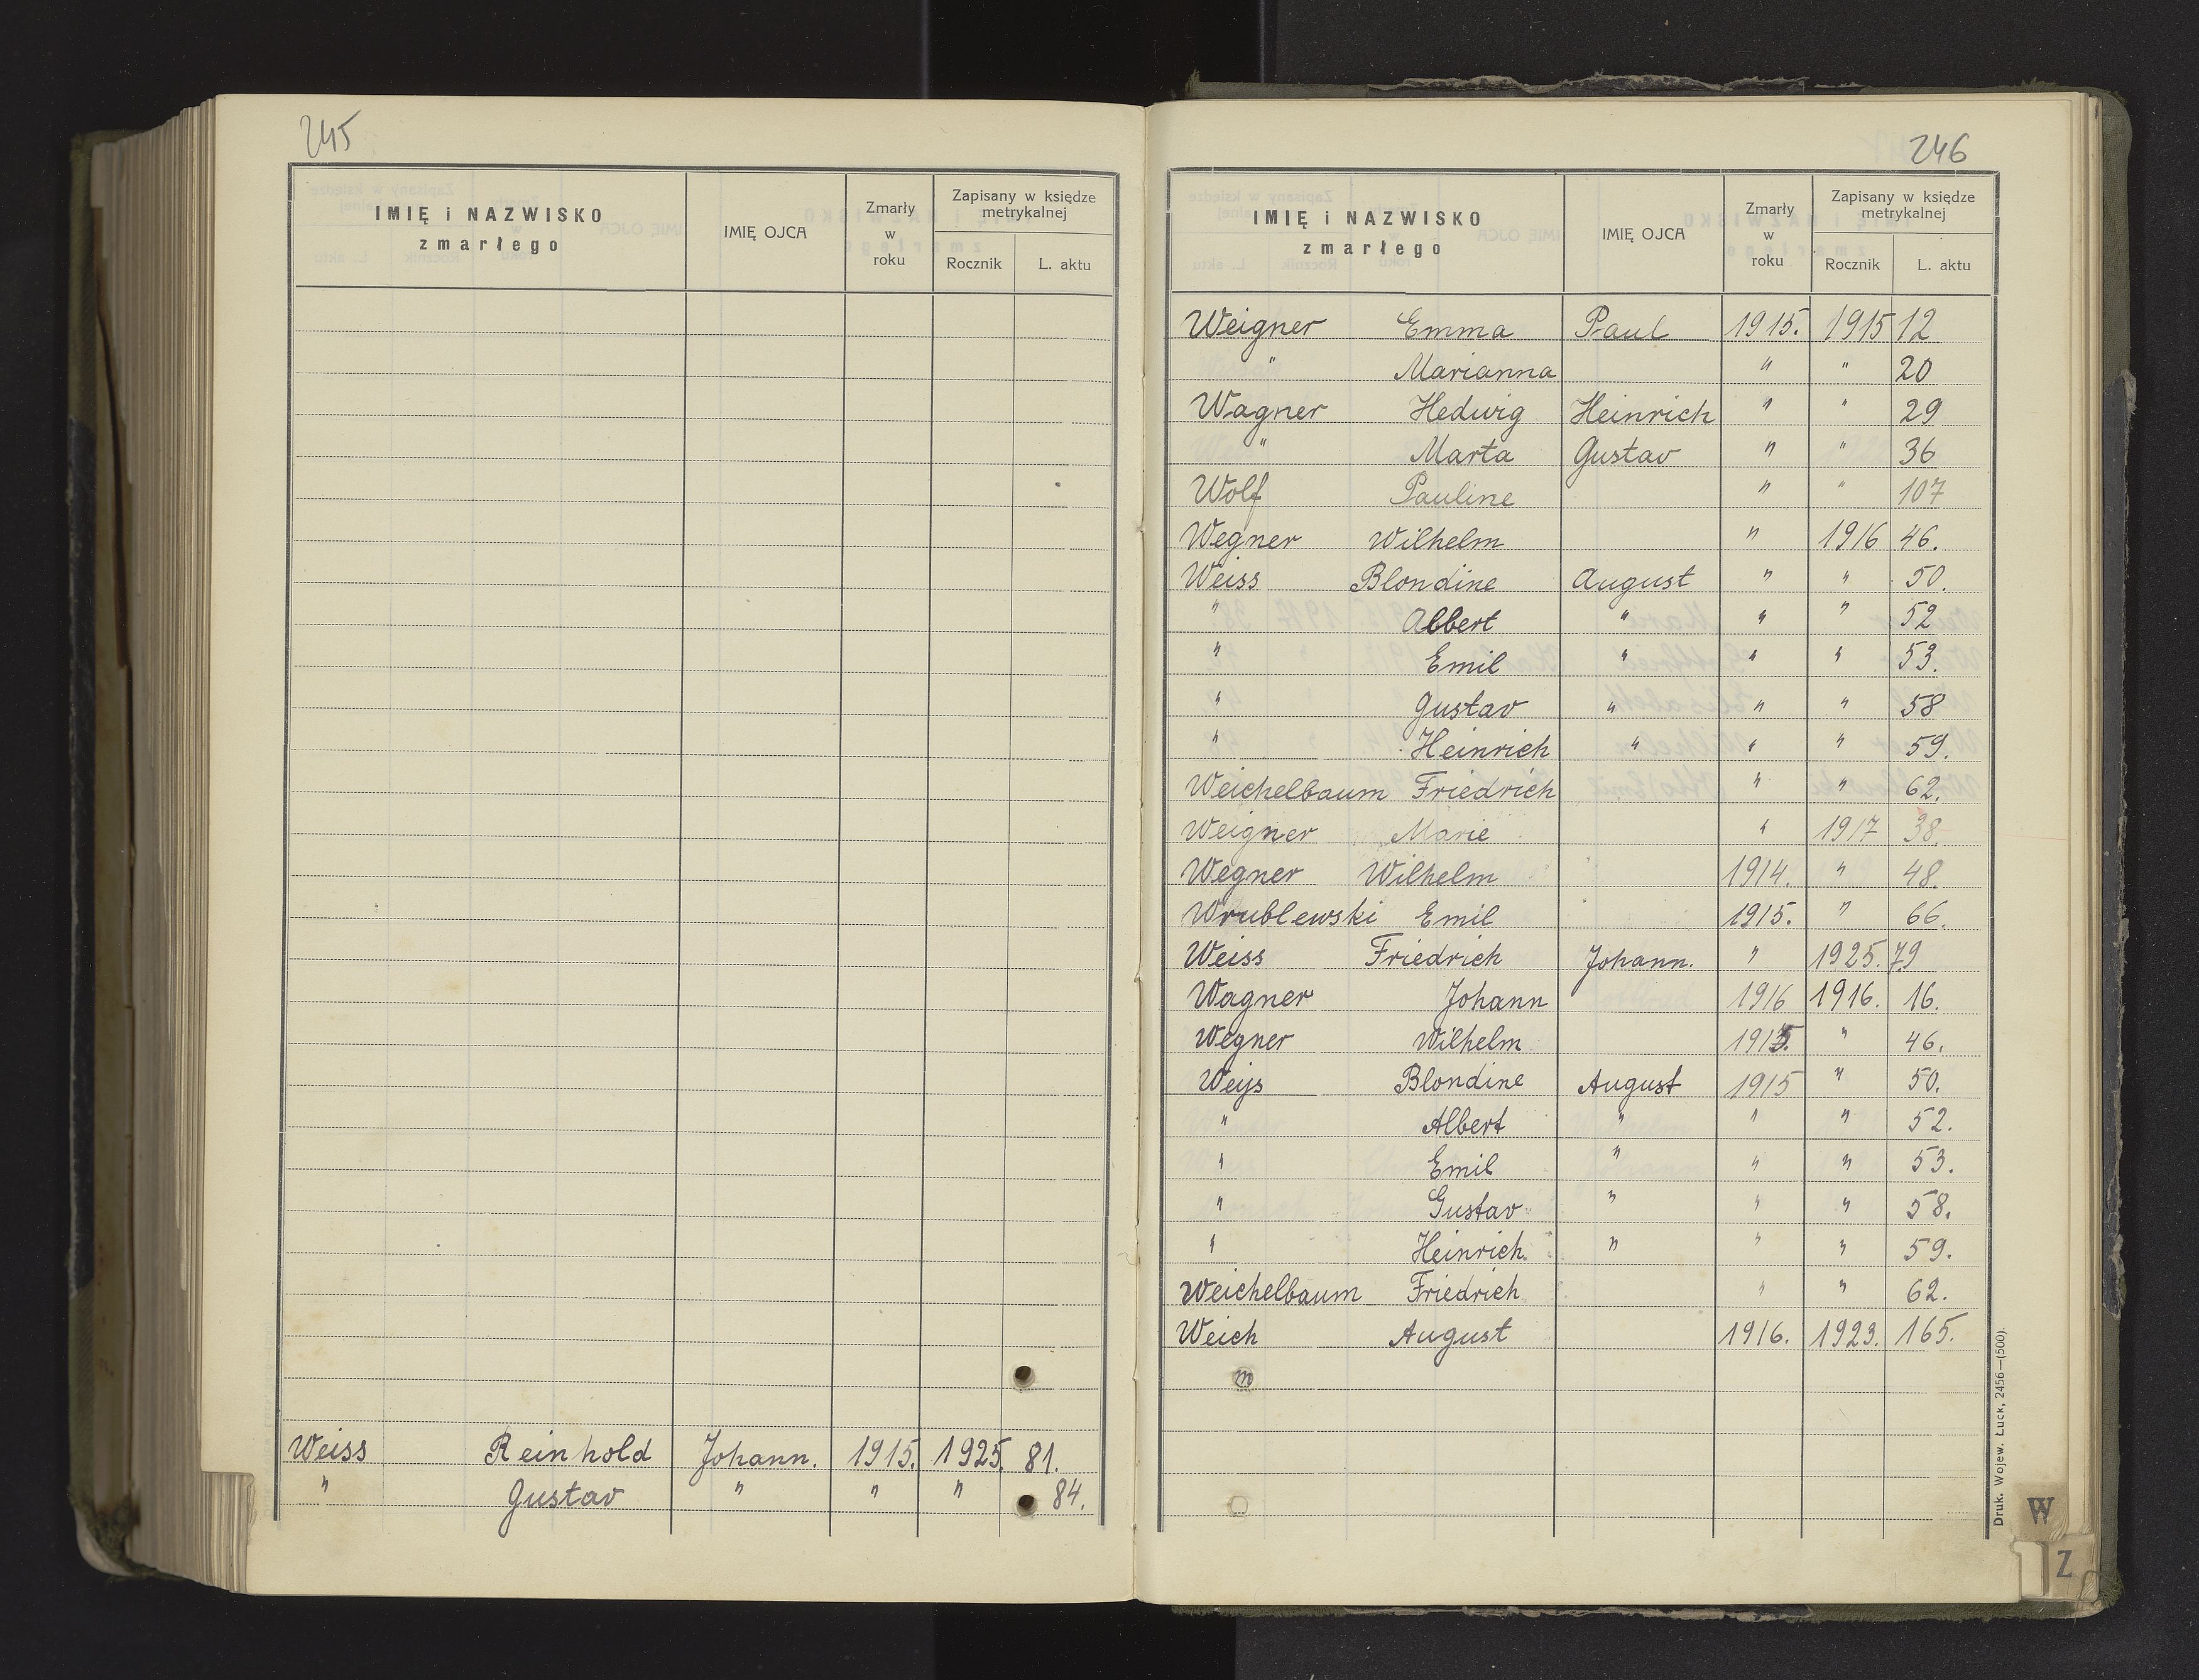 245
IMIĘ i NAZWISKO
zmarłego
IMIĘ OJCA
Zmarły
w
roku
Zapisany w księdze
metrykalnej
Rocznik
L. aktu
Weiss Reinhold Johann. 1915. 1925. 81.
" Gustav " " " 84.
246
IMIĘ i NAZWISKO
zmarłego
IMIĘ OJCA
Zmarły
w
roku
Zapisany w księdze
metrykalnej
Rocznik
L. aktu
Weigner Emma Paul 1915. 1915 12
" Marianna " " 20
Wagner Hedwig Heinrich " " 29
" Marta Gustav " " 36
Wolf Pauline " " 107
Wegner Wilhelm " 1916 46.
Weiss Blondine August " " 50.
" Albert " " " 52
" Emil " " " 53.
" Gustav " " " 58
" Heinrich " " " 59.
Weichelbaum Friedrich " " 62.
Weigner Marie " 1917 38.
Wegner Wilhelm 1914. " 48.
Wrublewski Emil 1915. " 66.
Weiss Friedrich Johann. " 1925. 79
Wagner Johann 1916 1916. 16.
Wegner Wilhelm 1915. " 46.
Weijs Blondine August 1915 " 50.
" Albert " " " 52.
" Emil " " " 53.
" Gustav " " " 58.
" Heinrich. " " " 59.
Weichelbaum Friedrich " " 62.
Weich August 1916. 1923. 165.
Druk. Wojew. Łuck, 2456—(500).
W
Z